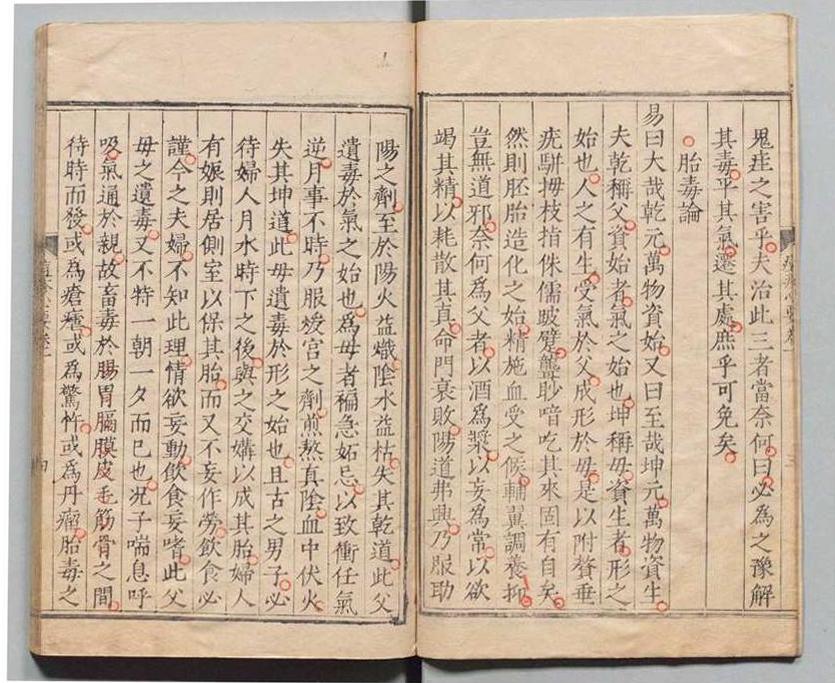 鬼疰之害乎夫治此三者當奈何曰必為之豫解
其毒平其氣遷其處庶乎可免矣
胎毒論
易曰大哉乾元萬物資始又曰至哉坤元萬物資生
夫乾稱父資始者氣之始也坤稱母資生者形之
始也人之有生受氣於父成形於母是以附贅垂
疣駢拇枝指侏儒跛躄聾眇喑吃其來固有自矣
然則胚胎造化之始精施血受之候輔翼調養抑
豈無道邪奈何為父者以酒為漿以妄為常以欲
竭其精以耗散其真命門衰敗陽道弗興乃服助
陽之劑至於陽火益熾陰水益枯失其乾道此父
遺毒於氣之始也為母者褊急妬忌以致衝任氣
逆月事不時乃服煖宮之劑煎熬真陰血中伏火
失其坤道此母遺毒於形之始也且古之男子必
待婦人月水時下之後與之交媾以成其胎婦人
有娠則居側室以保其胎而又不妄作勞飲食必
謹今之夫婦不知此理情欲妄動飲食妄嗜此父
母之遺毒又不特一朝一夕而已也况子喘息呼
吸氣通於親故畜毒於腸胃膈膜皮毛筋骨之間
待時而發或為瘡癋或為驚忤或為丹瘤胎毒之